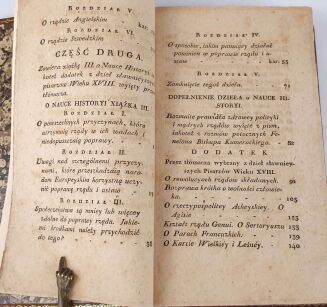 ROZDZIAŁ V.
O rządzie Angielskim
kar.
ROZDZIAŁ VI.
O rządzie Szwedzkim
CZĘŚĆ DRUGA.
Zawiera xiążkę III. o Nauce Historyi
tudzież dodatek z dzieł sławnieyszych
pisarzow Wieku XVIII. wyięty przez
tłómacza.
O NAUCE HISTORYI XIĄŻKA III.
ROZDZIAŁ I.
O powszechnych przyczynach, które
utrzymuią rządy w ich wadach i
niedopuszczaią poprawy.
ROZDZIAŁ II.
Uwagi nad szczególnemi przyczynami,
które przeszkadzaią narodom
Europeyskim korzystnię uczynić
poprawę rządu i ustaw
ROZDZIAŁ III.
Społeczeństwa są mniey lub więcey
zdolne do poprawy rządu. Jakiemi
środkami należy przychodzić
do tego?
38
ROZDZIAŁ IV.
O sposobie, jakim panuiący działać
powinien w poprawie rządu i ustaw
kar. 55
ROZDZIAŁ V.
Zamknięcie tego dzieła.
75
DOPEŁNIENIE DZIEŁA o NAUCE HISTORYI.
Rozmaite prawidła zdrowey polityki
i mądrych rządów wyięte z pism,
jakoteż z rozmów potocznych Fenelona
Biskupa Kameraceńskiego. 82
DODATEK
Przez tłómacza wybrany z dzieł sławnieyszych
Pisarzow Wieku XVIII.
O rewolucyach rządów składanych.
91
Rozprawa krótka o wolności człowieka.
O rzeczypospolitey Acheyskiey. O
Agisie
Kształt rządu Genui. O Sertoryuszu
O Parach Francuzkich.
O Karcie Wielkiéy i Leśnéy. 140